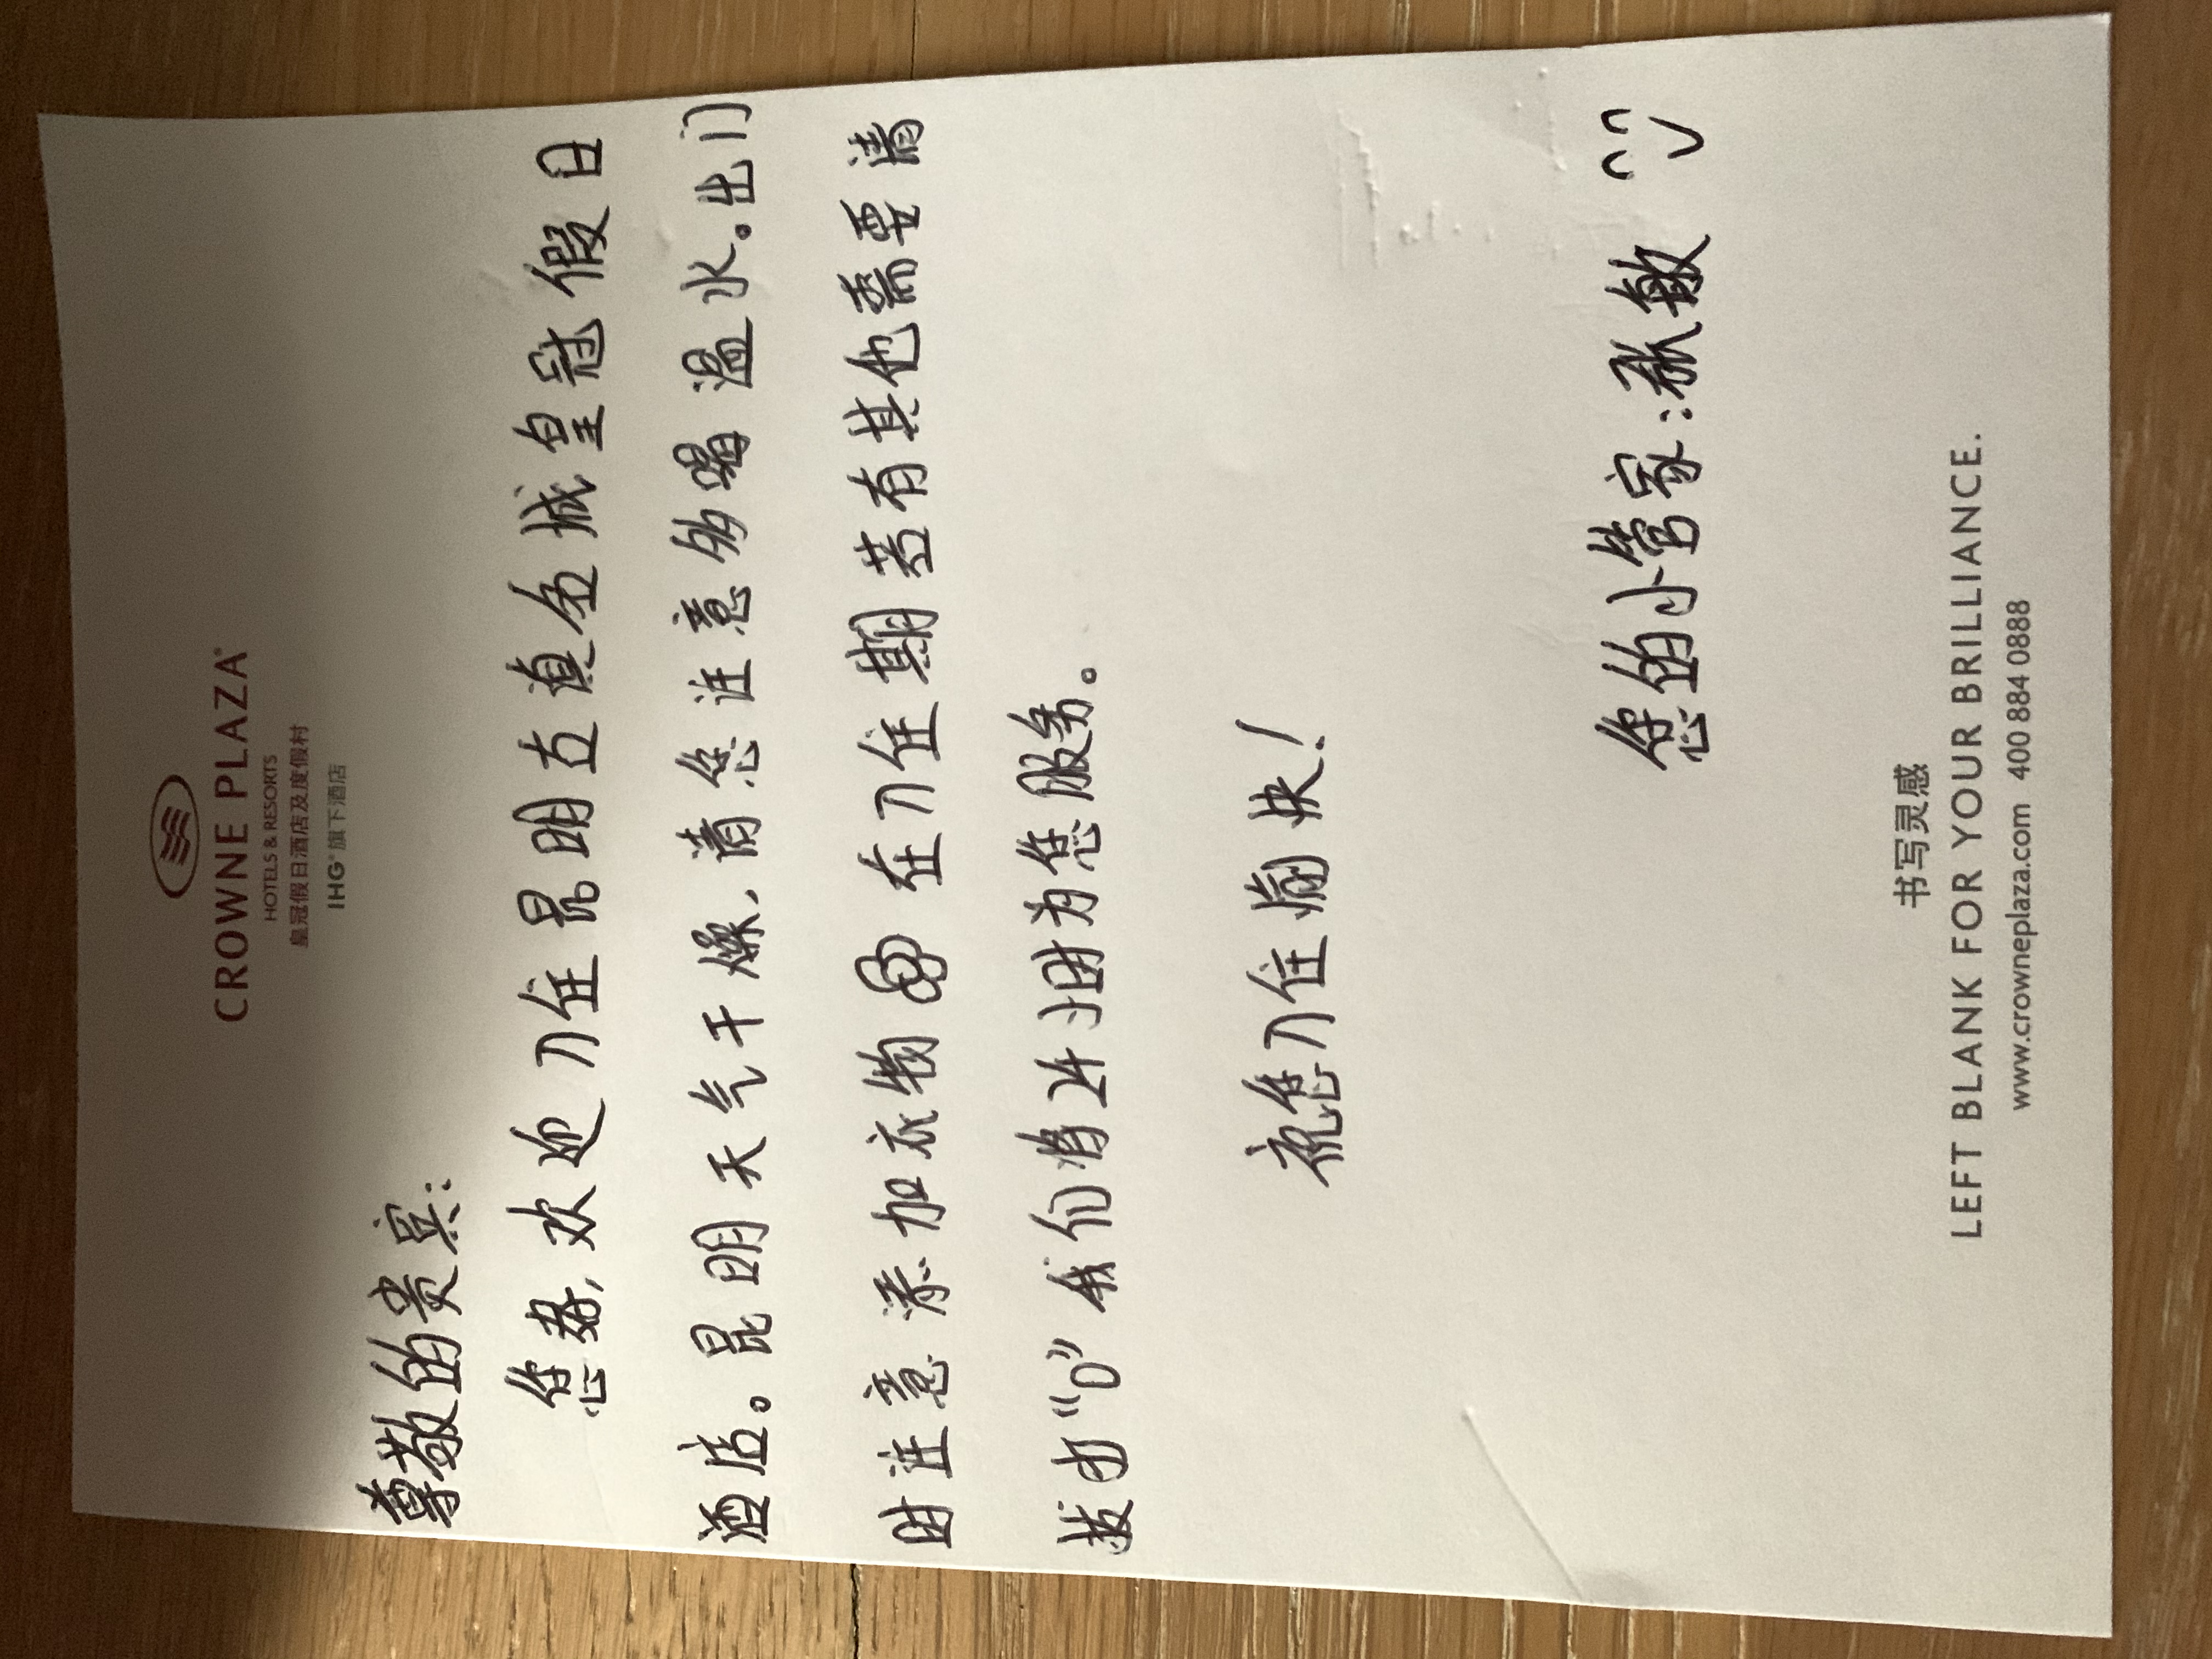 CROWNE PLAZA
HOTELS & RESORTS
皇冠假日酒店及度假村
IHG® 旗下酒店
尊敬的贵宾：
您好，欢迎入住昆明古滇名城皇冠假日
酒店。昆明天气干燥，请您注意多喝温水。出门
时注意添加衣物 在入住期若有其他需要请
拨打“0”我们将24小时为您服务。
祝您入住愉快！
您的小管家：张敏
书写灵感
LEFT BLANK FOR YOUR BRILLIANCE.
www.crowneplaza.com 400 884 0888